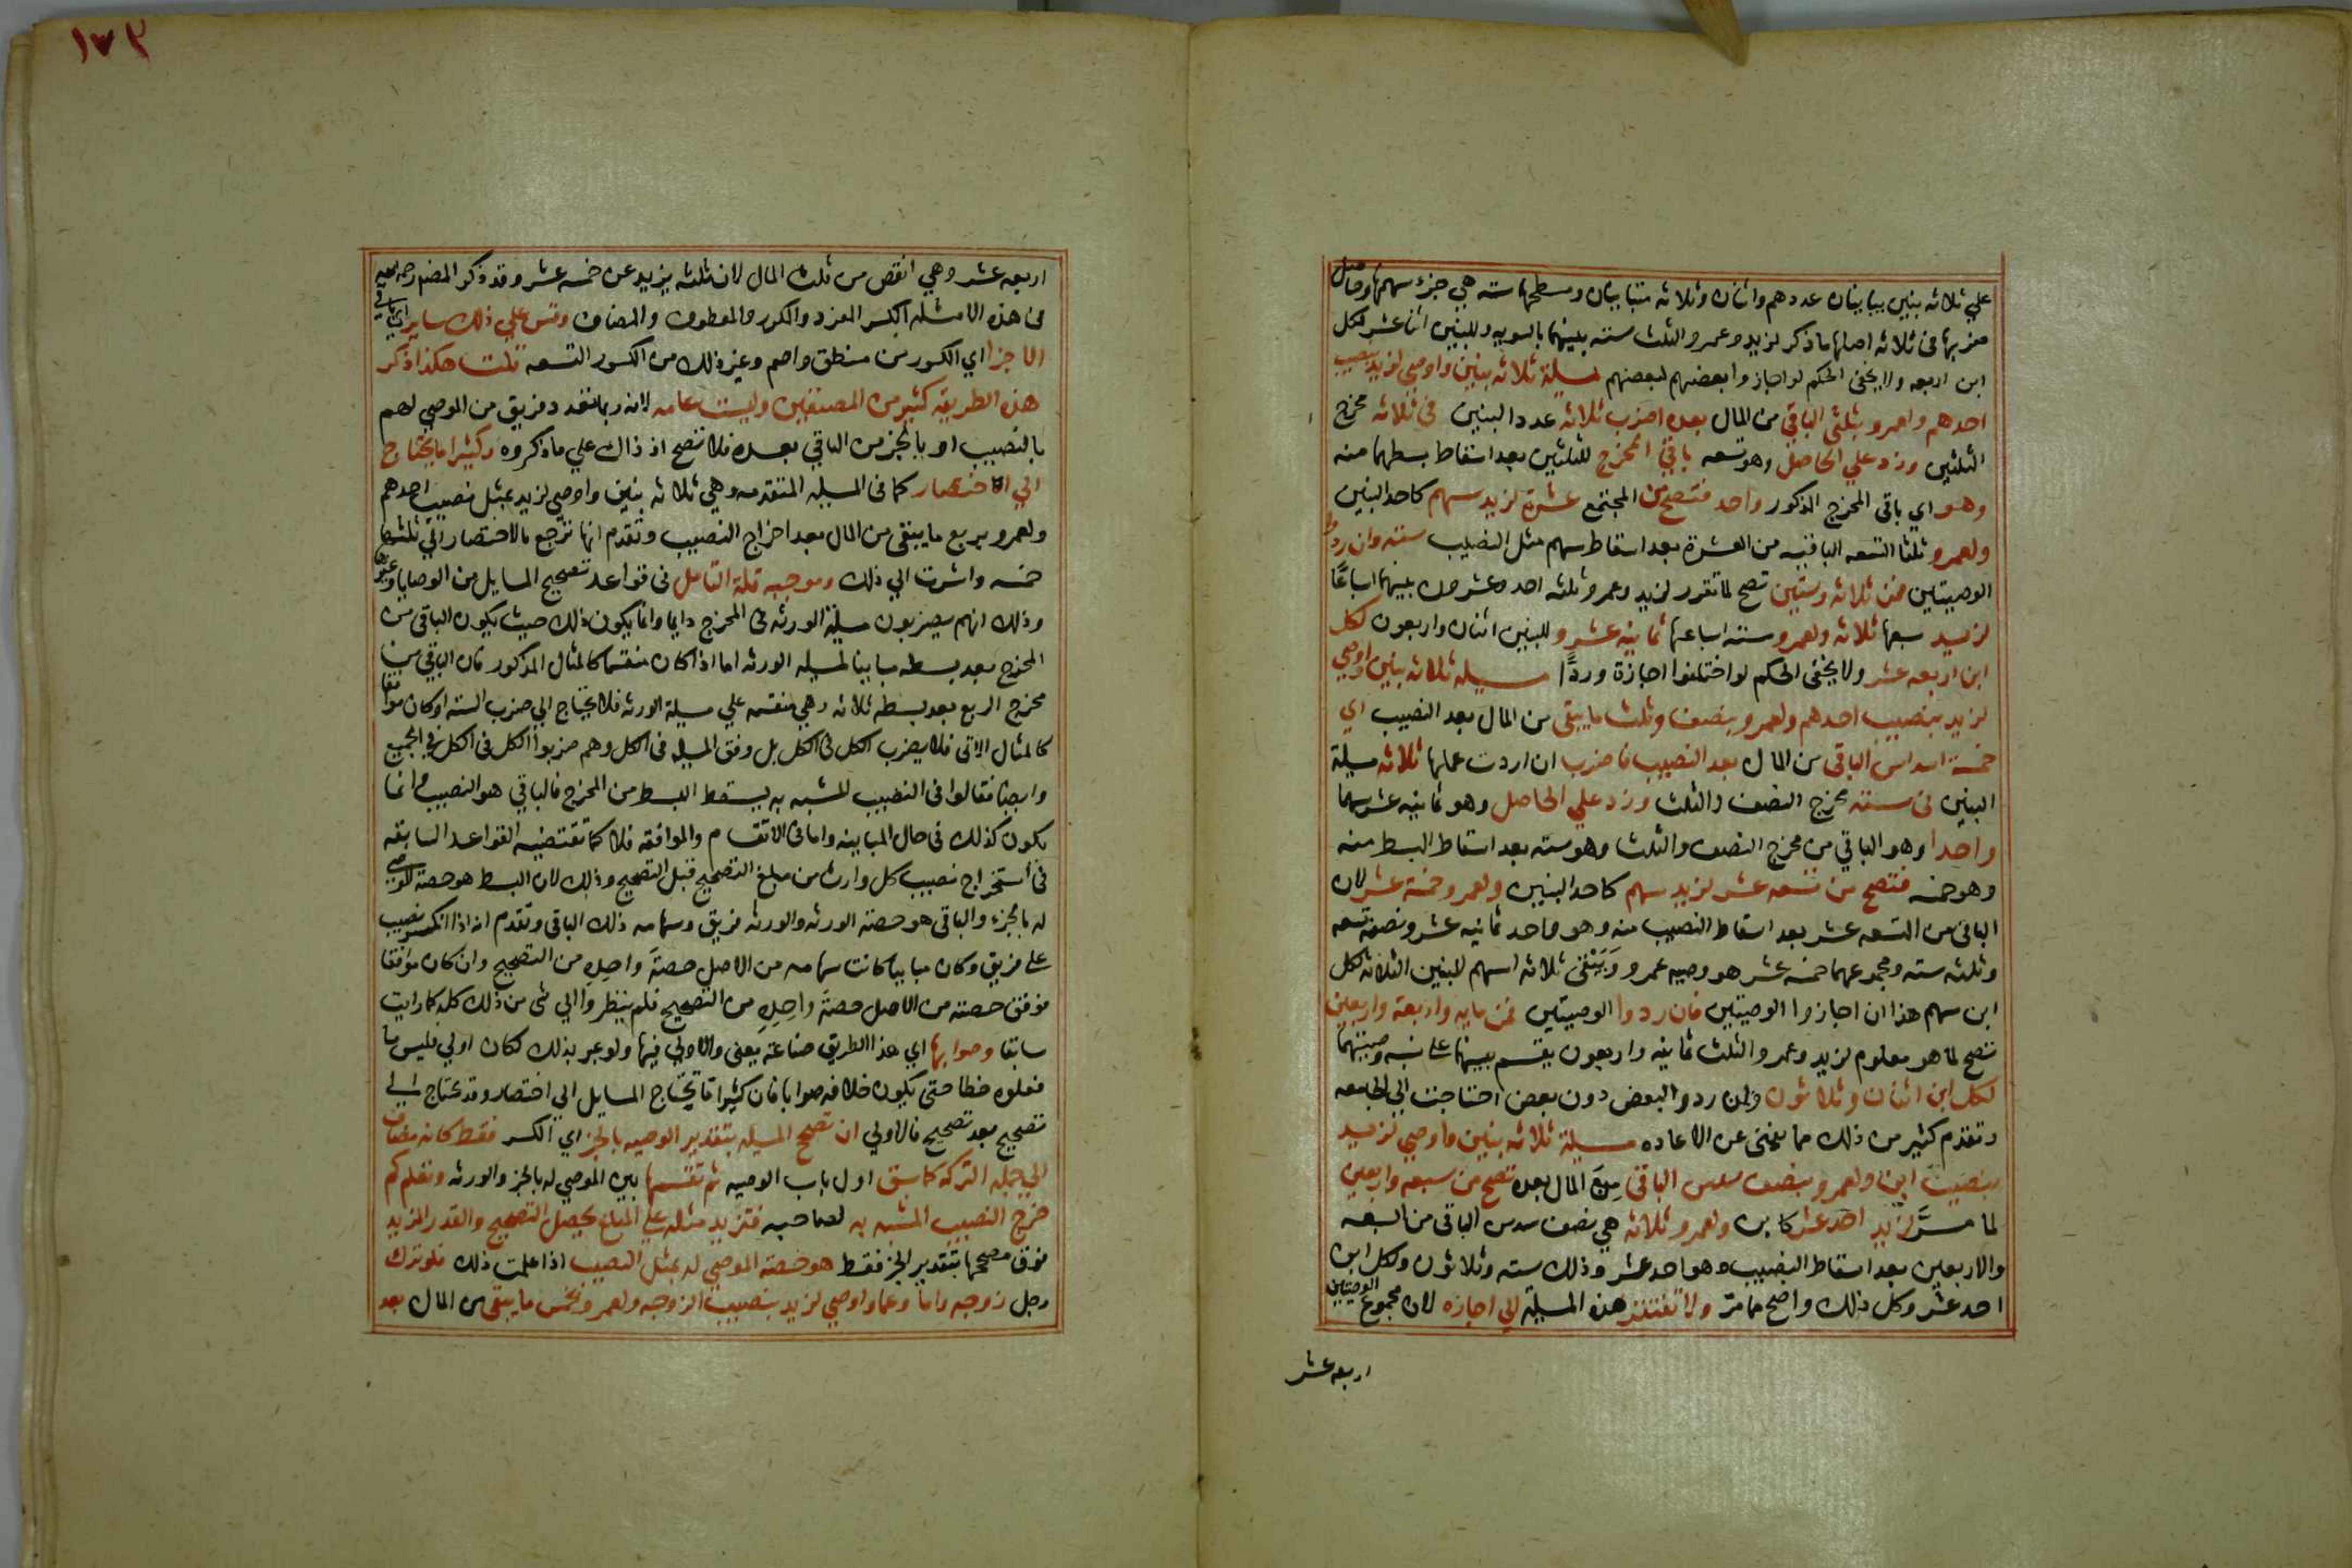 علي ثلاثه بنين يباينان عددهم واثنان وثلاثه متباينان ومسطحهما سته هي جزء سهمها وحاصل
ضربها في ثلاثه اصلها ما ذكر لزيد وعمرو الثلث سته بينهما بالسويه وللبنين اثنا عشر لكل
ابن اربعه ولا يخفى الحكم لو اجاز وا بعضهم لبعضهم مسيلة ثلاثه بنين واوصي لزيد بنصيب
احدهم ولعمرو بثلثي الباقي من المال بعده اضرب ثلاثه عدد البنين في ثلاثه مخرج
الثلثين وزد علي الحاصل وهو تسعه باقي المخرج للثلثين بعد اسقاط بسطهما منه
وهو اي باقي المخرج المذكور واحد فتصح من المجتمع عشرة لزيد سهم كاحد البنين
ولعمرو ثلثا التسعه الباقيه من العشرة بعد اسقاط سهم مثل النصيب سته وان ردوا
الوصيتين فمن ثلاثه وستين تصح لما تقرر لزيد وعمرو ثلثه احد وعشرون بينهما اسباعًا
لزيد سبعها ثلاثه ولعمرو سته اسباعها ثمانيه عشر وللبنين اثنان واربعون لكل
ابن اربعه عشر ولا يخفى الحكم لو اختلفوا اجازة وردًا مسيله ثلاثه بنين واوصي
لزيد بنصيب احدهم ولعمرو بنصف وثلث ما يبقى من المال بعد النصيب اي
خمسة اسداس الباقى من المال بعد النصيب فاضرب ان اردت عملها ثلاثه مسيلة
البنين في سته مخرج النصف والثلث وزد علي الحاصل وهو ثمانيه عشر سهما
واحدا وهو الباقي من مخرج النصف والثلث وهو سته بعد اسقاط البسط منه
وهو خمسه فتصح من تسعه عشر لزيد سهم كاحد البنين ولعمرو خمسة عشر لان
الباقى من التسعه عشر بعد اسقاط النصيب منه وهو واحد ثمانيه عشر ونصفه تسعه
وثلثه سته ومجموعهما خمسه عشر هو وصيه عمرو ويبقى ثلاثه اسهم للبنين الثلاثه لكل
ابن سهم هذا ان اجازوا الوصيتين فان ردوا الوصيتين فمن مايه واربعة واربعين
تصح لما هو معلوم لزيد وعمرو الثلث ثمانيه واربعون يقسم بينهما على نسبه وصيتهما
لكل ابن اثنان وثلاثون وان ردو البعض دون بعض احتاجت الي الجامعه
وتقدم كثير من ذلك مما يغنى عن الاعاده مسيلة ثلاثه بنين واوصي لزيد
بنصيب ابن ولعمرو بنصف سدس الباقى من المال بعده تصح من سبعه واربعين
لما مرَّ لزيد احد عشر كابن ولعمرو ثلاثه هي نصف سدس الباقى من السبعه
والاربعين بعد اسقاط النصيب وهو احد عشر وذلك سته وثلاثون ولكل ابن
احد عشر وكل ذلك واضح مما مر ولا تفتقر هذه المسيلة الي اجازه لان مجموع الوصيتين
اربعه عشر
١٧٢
اربعه عشر وهي انقص من ثلث المال لان ثلثه يزيد عن خمسه عشر وقد ذكر المصنف رحمه الله
في هذه الامثله الكسر المفرد والمكرر والمعطوف والمضاف وقس علي ذلك ساير اي باقي
الاجزا اي الكسور من منطق واصم وغير ذلك من الكسور التسعه قلت هكذا ذكر
هذه الطريقه كثير من المصنفين وليست عامه لانه ربما تعدد فريق من الموصي لهم
بالنصيب او بالجز من الباقي بعده فلا تصح اذ ذاك علي ما ذكروه وكثيرا ما يحتاج
الي الاختصار كما فى المسيله المتقدمه وهي ثلاثه بنين واوصي لزيد بمثل نصيب احدهم
ولعمرو بربع ما يبقى من المال بعد اخراج النصيب وتقدم انها ترجع بالاختصار الي ثلثها
خمسه واشرت الي ذلك وموجبه قلة التامل فى قواعد تصحيح المسايل من الوصايا وغيرها
وذلك انهم يضربون مسيلة الورثه فى المخرج دايما وانما يكون ذلك حيث يكون الباقى من
المخرج بعد بسطه مباينا لمسيله الورثه اما اذا كان منقسما كالمثال المذكور فان الباقي من
مخرج الربع بعد بسطه ثلاثه وهي منقسمه علي مسيلة الورثه فلا يحتاج الي ضرب السته او كان موافقا
كالمثال الاتى فلا يضرب الكل فى الكل بل وفق المسيله فى الكل وهم ضربوا الكل فى الكل في الجميع
وايضا فقالوا فى النصيب المشبه به يسقط البسط من المخرج فالباقي هو النصيب وانما
يكون كذلك فى حال المباينه واما فى الانقسام والموافقه فلا كما تقتضيه القواعد السابقه
فى استخراج نصيب كل وارث من مبلغ التصحيح قبل التصحيح وذلك لان البسط هو حصة الموصي
له بالجزء والباقى هو حصة الورثه والورثه فريق وسهامه ذلك الباقى وتقدم انه اذا انكسر نصيب
على فريق وكان مباينا كانت سهامه من الاصل حصةَ واحِدِهِ من التصحيح وان كان موافقا
فوفق حصته من الاصل حصةَ واحِدِهِ من التصحيح فلم ينظروا الي شى من ذلك كله كما رايت
سابقا وصوابها اي هذا الطريق صناعة يعني والاولي فيها ولو عبر بذلك لكان اولي فليس ما
فعلوه خطا حتى يكون خلافه صوابا فان كثيرا ما يحتاج المسايل الي اختصار وقد تحتاج الي
تصحيح بعد تصحيح فالاولي ان تصحح المسيله بتقدير الوصيه بالجز اي الكسر فقط كانه مضاف
الي جمله التركه كما سبق اول باب الوصيه ثم تقسمها بين الموصي له بالجز والورثه وتعلم كم
خرج النصيب المشبه به لصاحبه فتزيد مثله علي المبلغ يحصل التصحيح والقدر المزيد
فوق مصححها بتقدير الجز فقط هو حصة الموصي له بمثل النصيب اذا علمت ذلك فلو ترك
رجل زوجه واما وعما واوصي لزيد بنصيب الزوجه ولعمرو بخمس ما يبقى من المال بعد